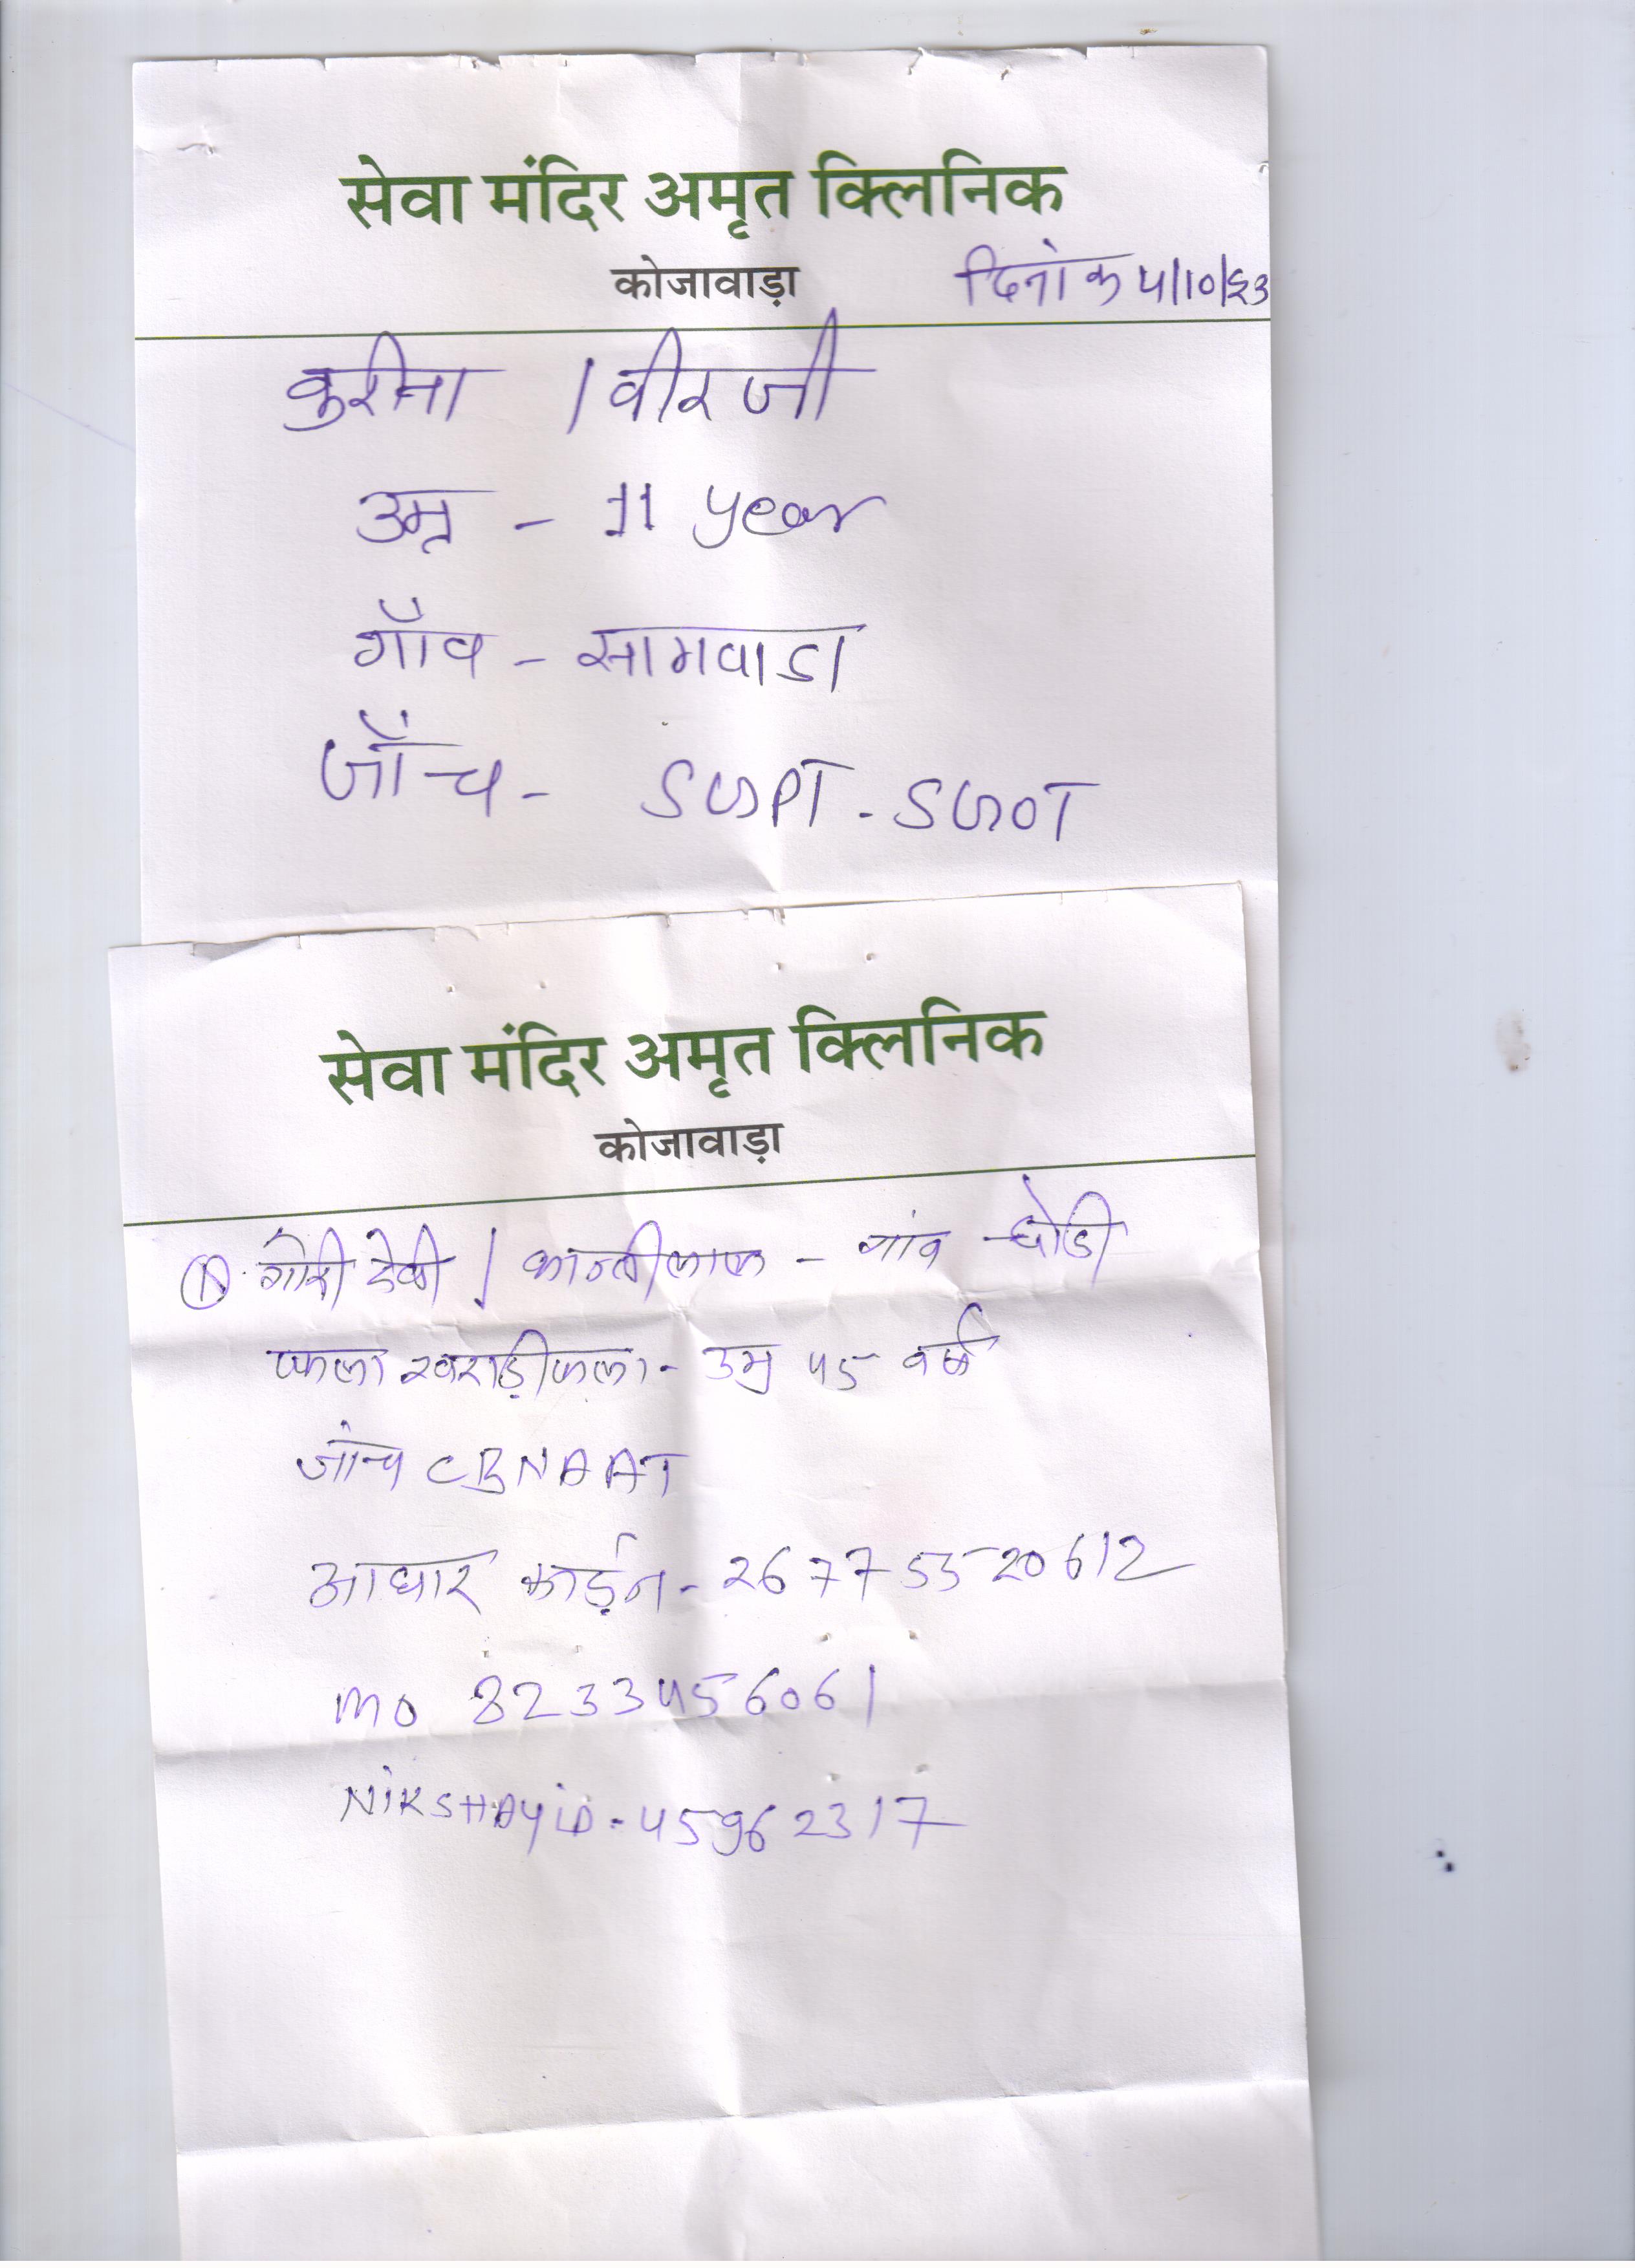 सेवा मंदिर अमृत क्लिनिक
कोजावाड़ा
दिनांक 4/10/23
/ वीरजी
उम्र - 11 year
गाँव - सागवाडा
जाँच - SGPT - SGOT
सेवा मंदिर अमृत क्लिनिक
कोजावाड़ा
① गोरी देवी / कान्तीलाल - गांव -
फला खराड़ीफला - उम्र 45 वर्ष
जांच CBNAAT
आधार कार्ड न - 267755520612
mo 8233456061
NIKSHAY iD - 45962317